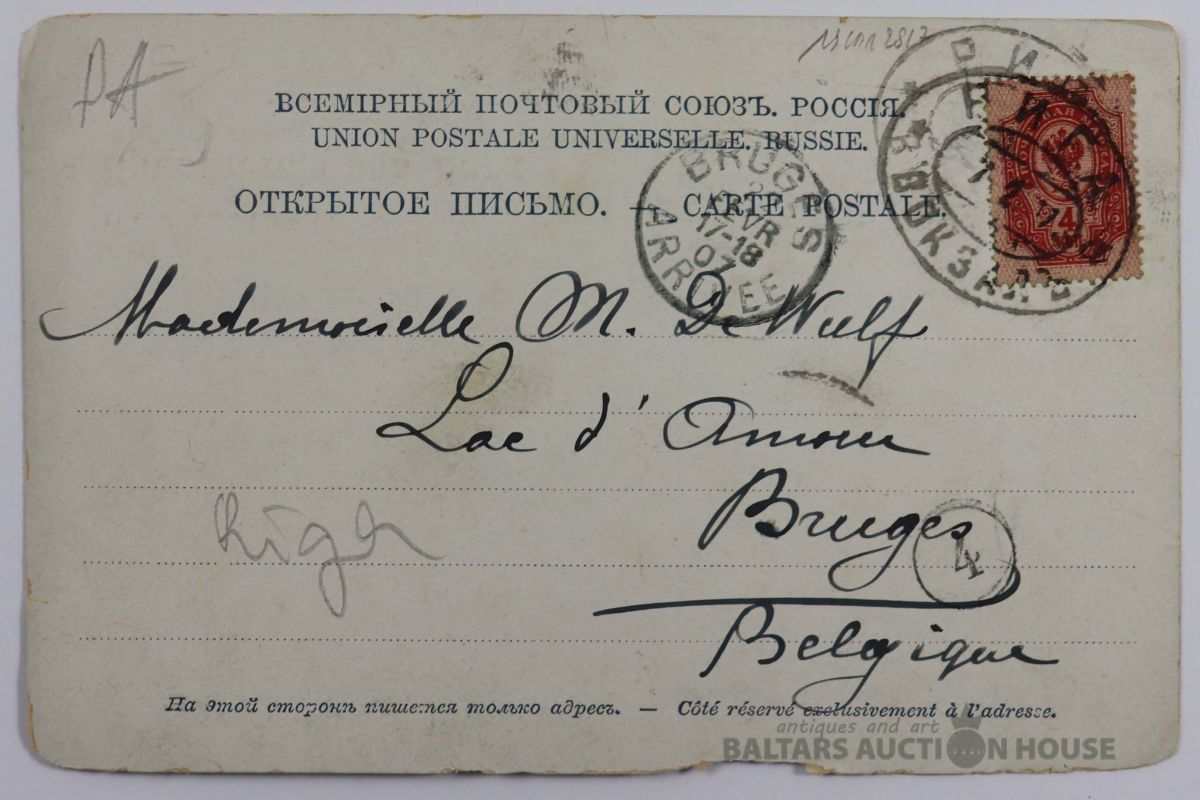 PA
ВСЕМІРНЫЙ ПОЧТОВЫЙ СОЮЗЪ. РОССІЯ.
UNION POSTALE UNIVERSELLE. RUSSIE.
ОТКРЫТОЕ ПИСЬМО. — CARTE POSTALE.
BRUGES
FEVR
17-18
07
ARRIVEE
РИГА
ВОКЗАЛЪ
4
Mademoiselle M. De Wulf
Lac d'Amour
Bruges
4
Riga
Belgique
На этой сторонѣ пишется только адресъ. — Côté réservé exclusivement à l'adresse.
antiques and art
BALTARS AUCTION HOUSE